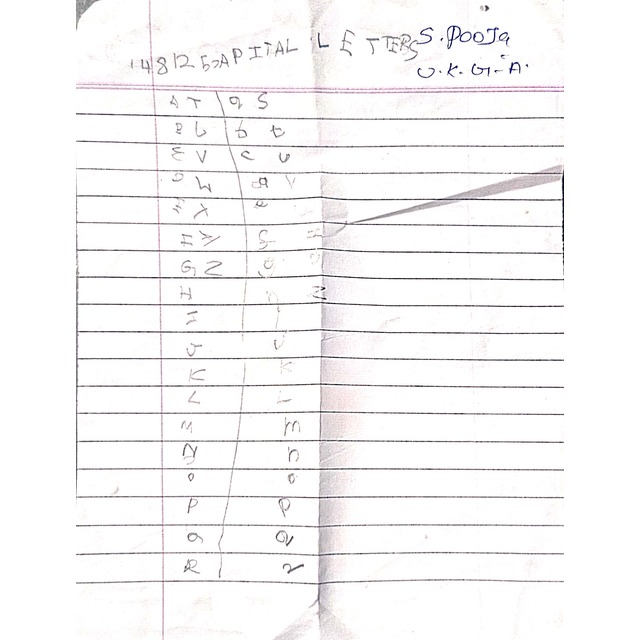 14812 CAPITAL LETTERS S. Pooja
U.K.G-A.
A T a S
B L b t
E V C U
W a V
F X e
H Y
G Z g
H N
I
J J
K K
L L
M m
N n
o o
P P
a Q
R r